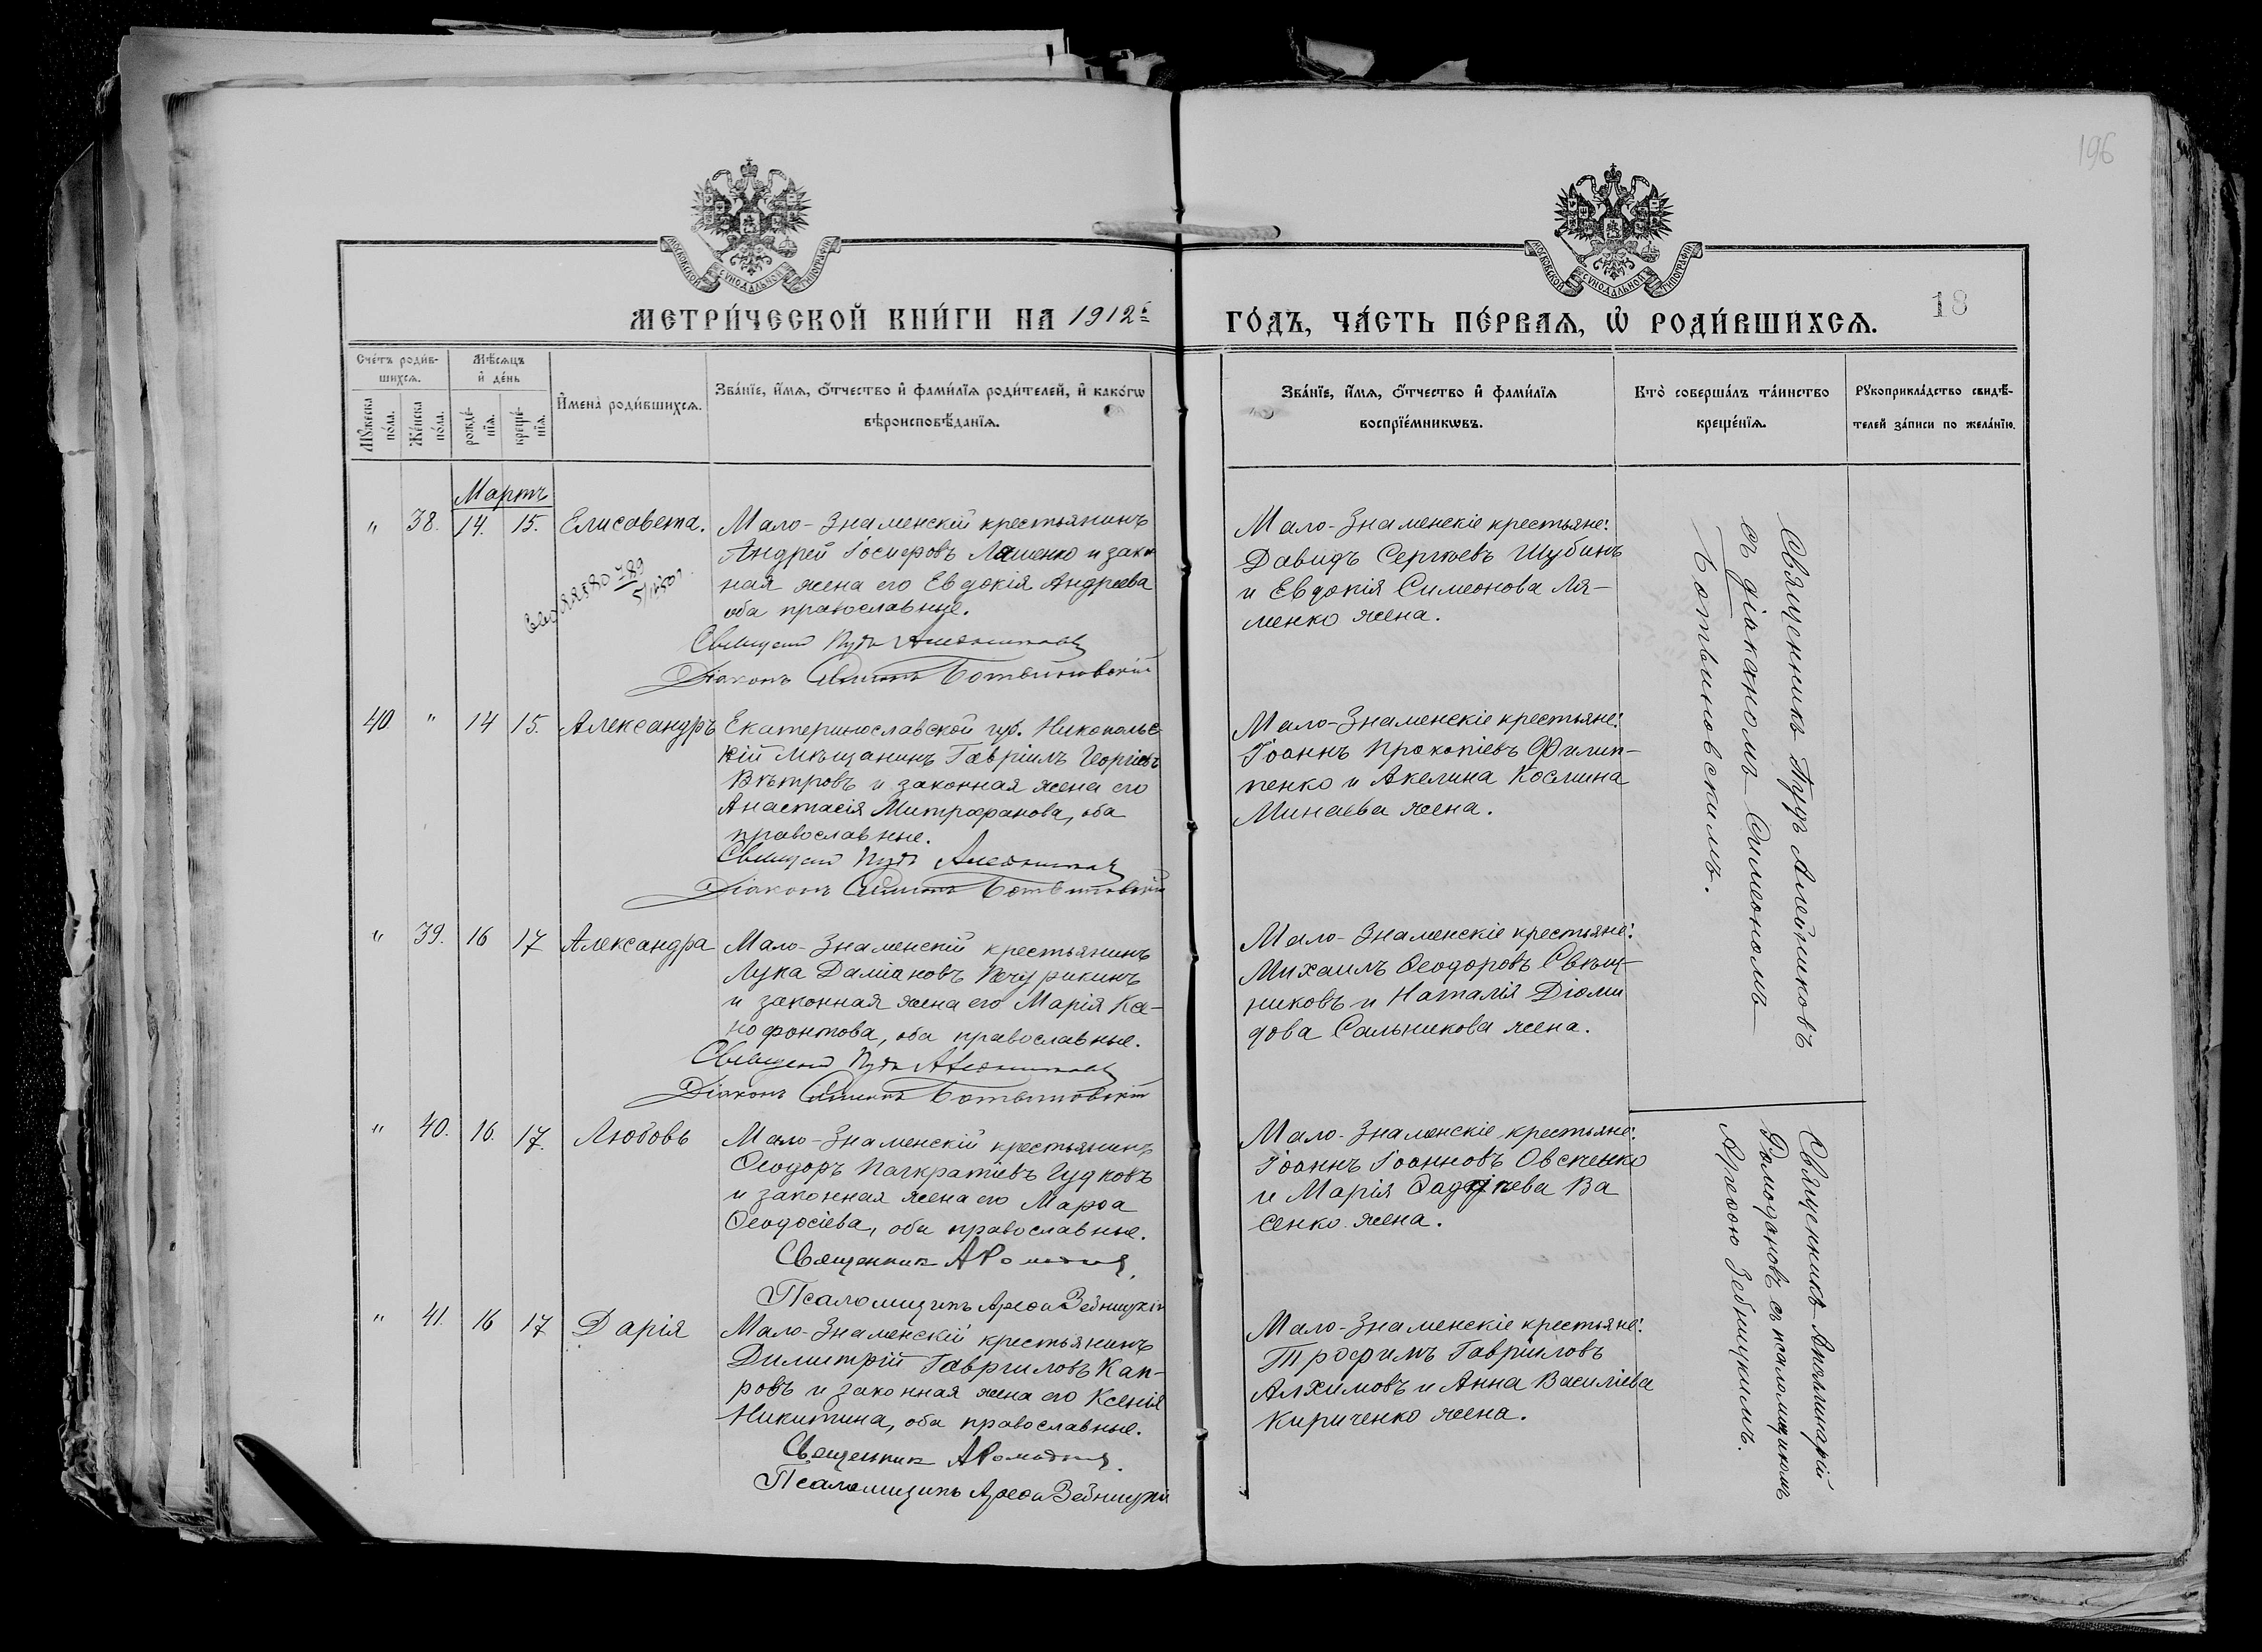 196
МОСКОВСКОЙ СУНОДАЛЬНОЙ ТИПОГРАФІИ
МОСКОВСКОЙ СУНОДАЛЬНОЙ ТИПОГРАФІИ
МЕТРИ́ЧЕСКОЙ КНИ́ГИ НА 1912 г.
ГО́ДЪ, ЧА́СТЬ ПЕ́РВАѦ, Ѡ҆ РОДИ́ВШИХСѦ.
18
Сче́тъ роди́в-
шихсѧ.
Мѣ́сѧцъ
и҆ де́нь
Мꙋ́жеска
по́ла.
Же́нска
по́ла.
рожде́-
нїѧ.
креще́-
нїѧ.
И҆мена̀ роди́вшихсѧ.
Зва́нїе, и҆́мѧ, ѻ҆́тчество и҆ фами́лїѧ роди́телей, и҆ како́гѡ
вѣроисповѣ́данїѧ.
Зва́нїе, и҆́мѧ, ѻ҆́тчество и҆ фами́лїѧ
воспрїе́мникѡвъ.
Кто̀ соверша́лъ та́инство
креще́нїѧ.
Рꙋкоприкла́дство свидѣ́-
телей за́писи по жела́нїю.
Мартъ
" 38. 14. 15. Елисавета.
Мало-Знаменскій крестьянинъ
Андрей Іосифовъ Ляшенко и закон
ная жена его Евдокія Андреева
оба православные.
Священ Пудъ Алейников
Діаконъ Симеонъ Ботвиновскій
Мало-Знаменскіе крестьяне:
Давидъ Сергѣевъ Шубинъ
и Евдокія Симеонова Ля-
шенко жена.
40 " 14 15. Александръ
Екатеринославской губ. Никопольс-
кій мѣщанинъ Гавріилъ Георгіевъ
Вѣтровъ и законная жена его
Анастасія Митрофанова, оба
православные.
Священ Пудъ Алейников
Діаконъ Симеонъ Ботвиновскій
Мало-Знаменскіе крестьяне:
Іоаннъ Прокопіевъ Филип-
пенко и Акелина Космина
Минаева жена.
Священникъ Пудъ Алейниковъ
съ діакономъ Симеономъ
Ботвиновскимъ.
" 39. 16 17 Александра
Мало-Знаменскій крестьянинъ
Лука Даміановъ Печурикинъ
и законная жена его Марія Ксе-
нофонтова, оба православные.
Священ Пудъ Алейников
Діаконъ Симеонъ Ботвиновскій
Мало-Знаменскіе крестьяне:
Михаилъ Ѳеодоровъ Свѣш-
никовъ и Наталія Діоми
дова Сальникова жена.
" 40. 16. 17. Любовь
Мало-Знаменскій крестьянинъ
Ѳеодоръ Панкратіевъ Гудковъ
и законная жена его Марѳа
Ѳеодосіева, оба православные.
Священникъ А Ромоданов
Псаломщикъ Ареѳа Зебницкій
Мало-Знаменскіе крестьяне:
Іоаннъ Іоанновъ Овсіенко
и Марія Ѳаддеева Ва
сенко жена.
Священникъ Аполлинарій
Ромодановъ съ псаломщикомъ
Ареѳою Зебницкимъ.
" 41. 16 17 Дарія
Мало-Знаменскій крестьянинъ
Димитрій Гавриловъ Кап-
ровъ и законная жена его Ксенія
Никитина, оба православные.
Священникъ А Ромоданов
Псаломщикъ Ареѳа Зебницкій
Мало-Знаменскіе крестьяне:
Трофимъ Гавріиловъ
Алхимовъ и Анна Василіева
Кириченко жена.